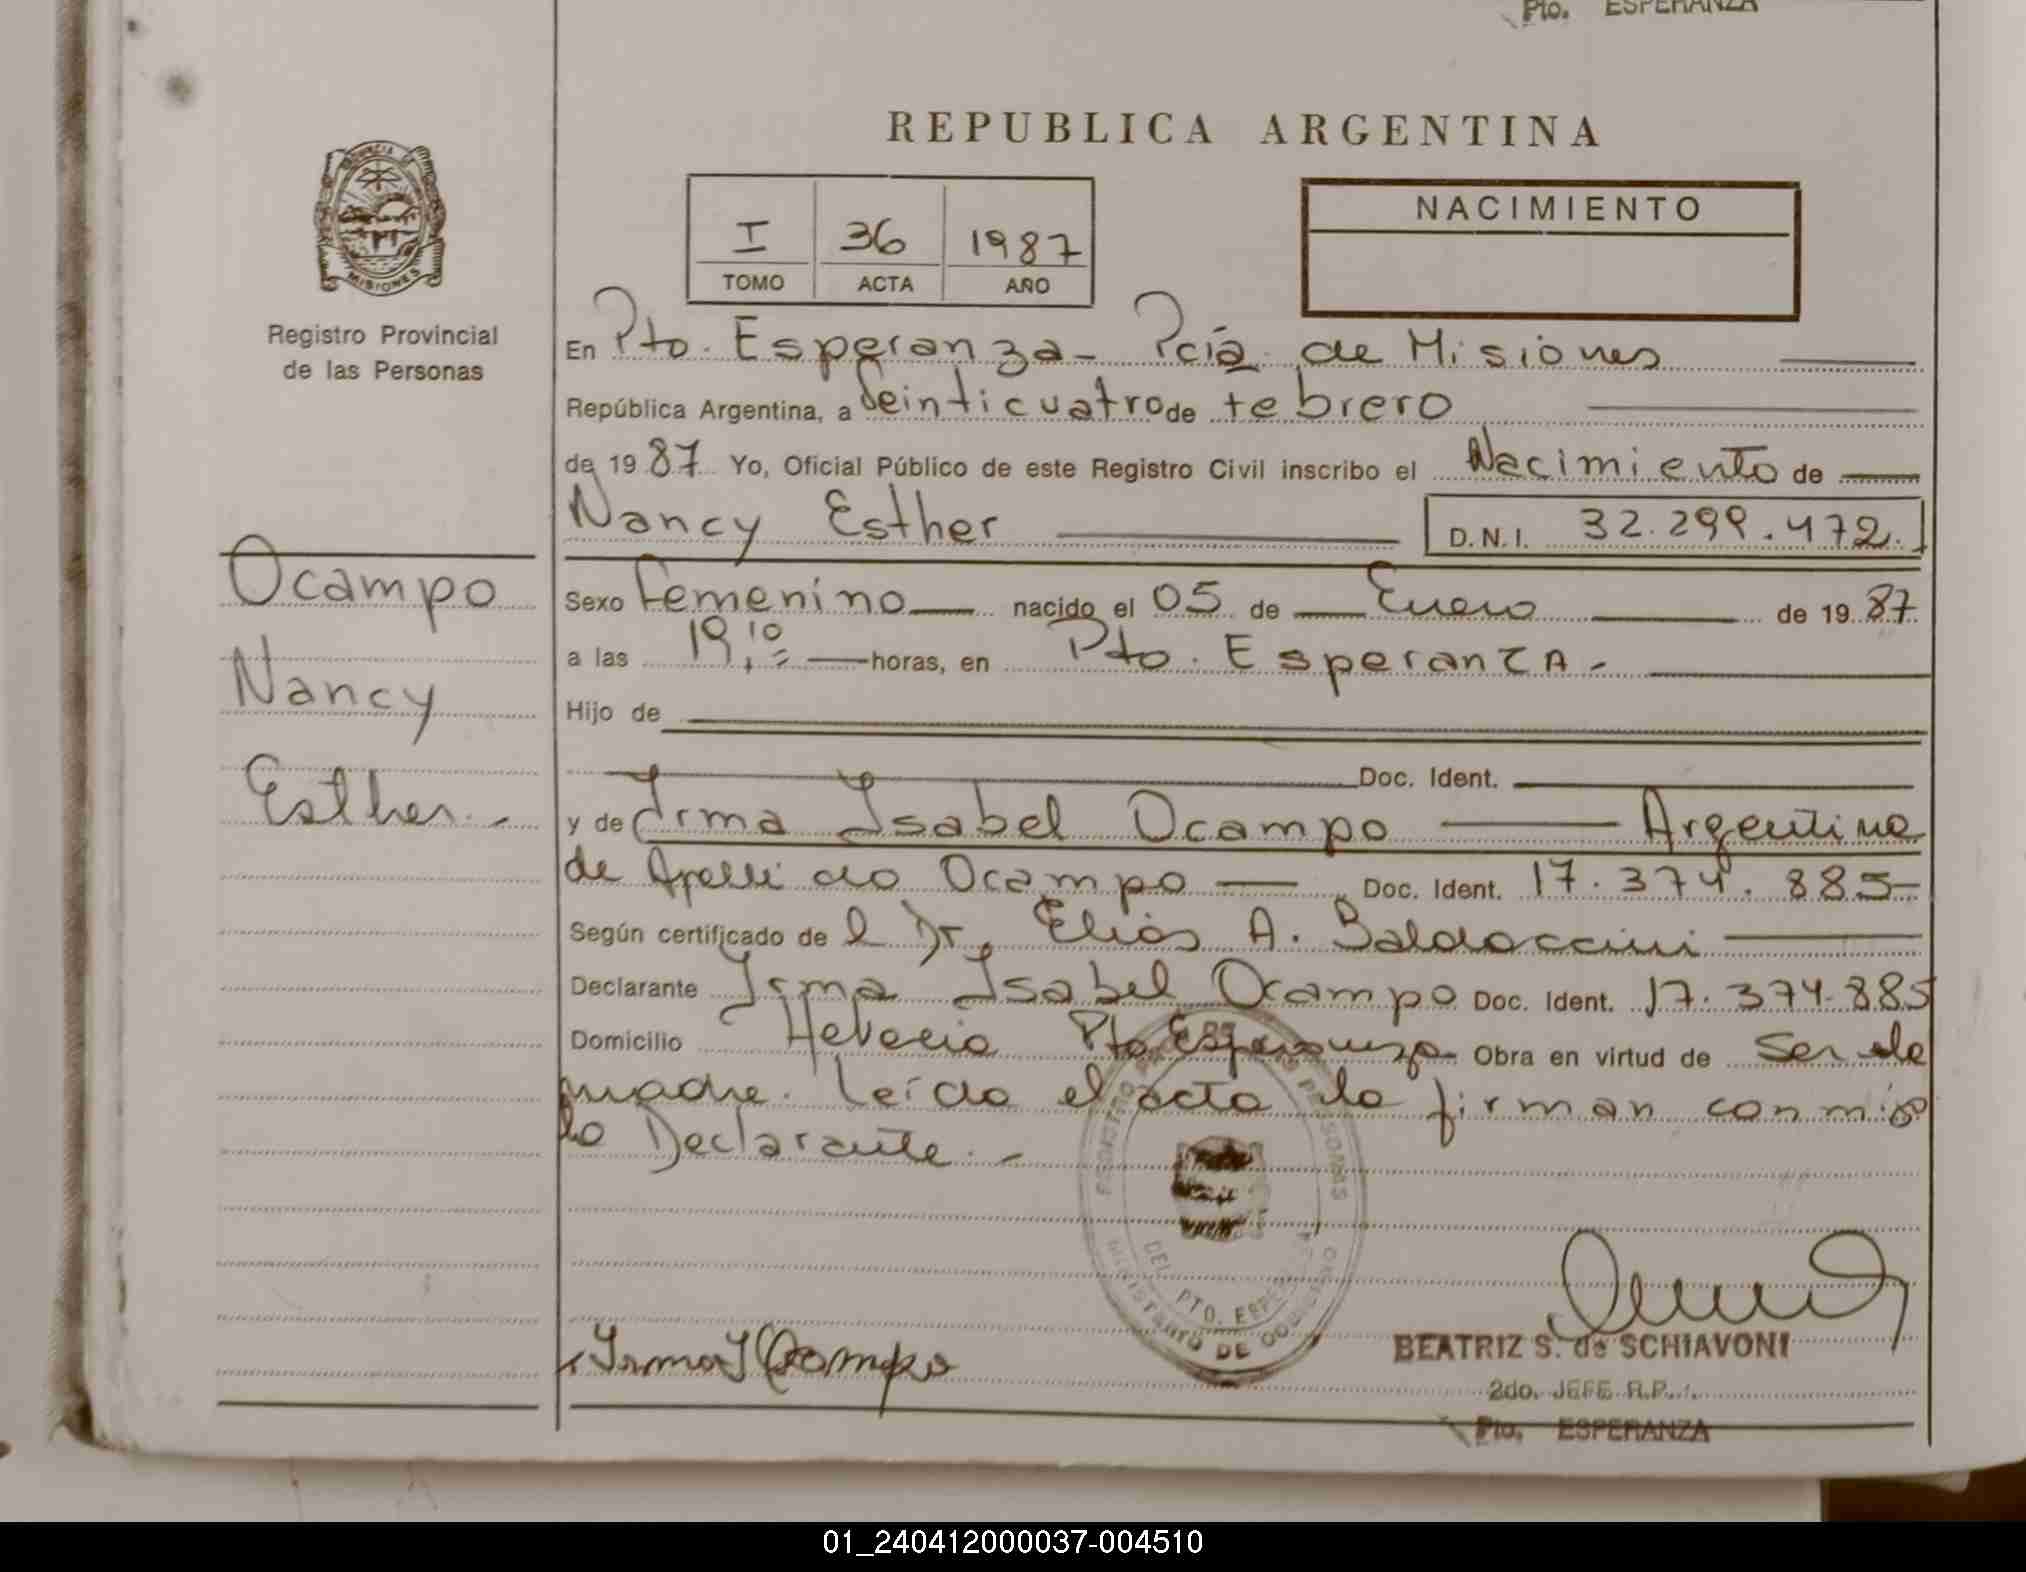 Pto. ESPERANZA
REPUBLICA ARGENTINA
PROVINCIA DE
MISIONES
Registro Provincial
de las Personas
I 36 1987
TOMO ACTA AÑO
NACIMIENTO
En Pto. Esperanza - Pcia. de Misiones
República Argentina, a Veinticuatro de febrero
de 1987 Yo, Oficial Público de este Registro Civil inscribo el Nacimiento de
Nancy Esther D.N.I. 32.299.472.
Ocampo
Nancy
Esther.-
Sexo Femenino nacido el 05 de Enero de 1987
a las 19,10 horas, en Pto. Esperanza.-
Hijo de
Doc. Ident.
y de Irma Isabel Ocampo Argentina
de Apellido Ocampo Doc. Ident. 17.374.885
Según certificado del Dr. Elias A. Baldoccini
Declarante Irma Isabel Ocampo Doc. Ident. 17.374.885
Domicilio Helvecia Pto Esperanza Obra en virtud de Ser de
madre. Leída el acta la firman conmigo
la Declarante.-
REGISTRO PERSONAS
DEL. PTO. ESPERANZA
MINISTERIO DE GOBIERNO
Irma I Ocampo
BEATRIZ S. de SCHIAVONI
2do. JEFE R.P.
Pto. ESPERANZA
01_240412000037-004510